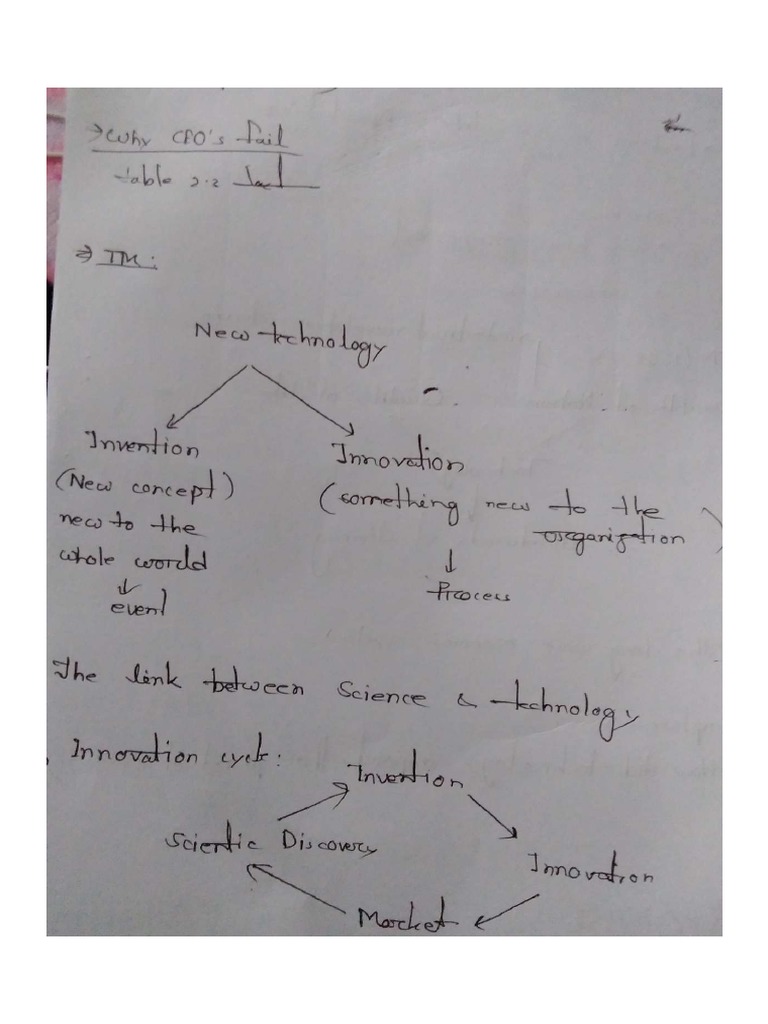 → Why CPO's fail
table 2.2
⇒ TM:
New technology
Invention
(New concept)
new to the
whole world
↓
event
Innovation
(something new to the
organization)
↓
Process
The link between Science & technology
Innovation cycle:
Invention
Scientic Discovery
Innovation
Market